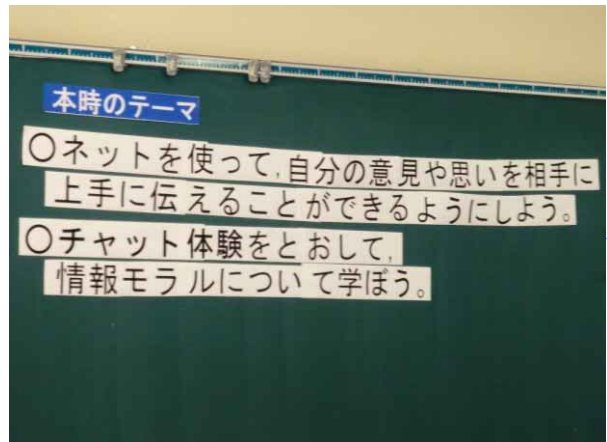 本時のテーマ
○ネットを使って,自分の意見や思いを相手に
上手に伝えることができるようにしよう。
○チャット体験をとおして,
情報モラルについて学ぼう。